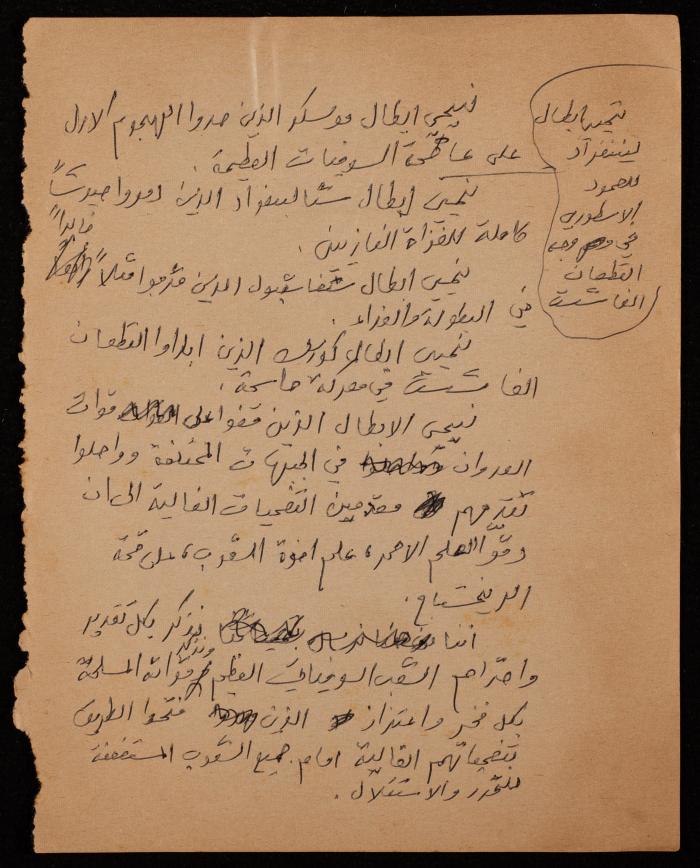 نحيي ابطال موسكو الذين صدوا الهجوم الاول
على عاصمة السوفيات العظيمة .
نحيي ابطال ستالينغراد الذين دمروا جيوشاً
كاملة للغزاة النازيين .
نحيي ابطال سفاستبول الذين قدموا مثلاً خالداً
في البطولة والفداء .
نحيي ابطال كورسك الذين ابادوا القطعان
الفاشست في معركة حاسمة .
نحيي الابطال الذين قضوا على قوات
العدوان في الجبهات المختلفة وواصلوا
تقدمهم مقدمين التضحيات الغالية الى ان
العلم الاحمر، علم اخوة الشعوب، على قمة
الرايخستاغ .
اننا نذكر بكل تقدير
واحترام الشعب السوفياتي العظيم ونذكر قواته المسلحة
بكل فخر واعتزاز الذين فتحوا الطريق
بتضحياتهم الغالية امام جميع الشعوب المستضعفة
للتحرر والاستقلال .
نحيي ابطال
لينينغراد
للصمود
الاسطوري
في وجه
القطعان
الفاشست